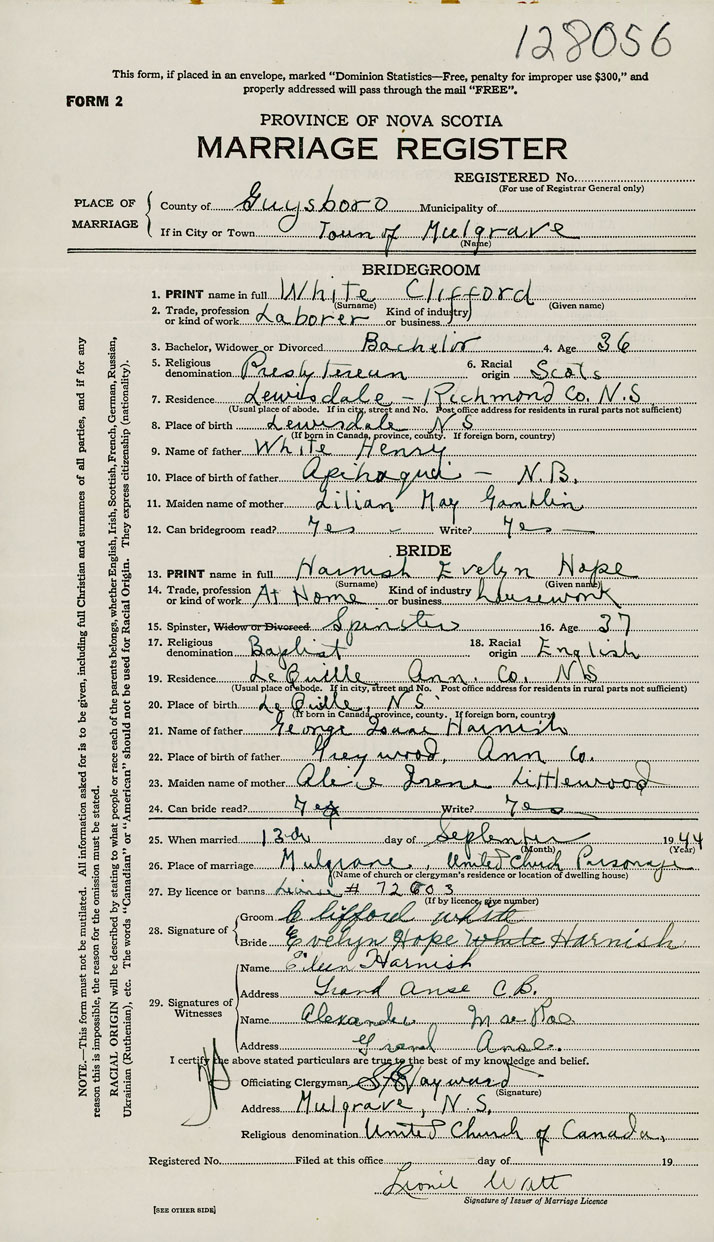 128056
This form, if placed in an envelope, marked "Dominion Statistics—Free, penalty for improper use $300," and
properly addressed will pass through the mail "FREE".
FORM 2
PROVINCE OF NOVA SCOTIA
MARRIAGE REGISTER
REGISTERED No.
(For use of Registrar General only)
PLACE OF MARRIAGE
County of Guysboro Municipality of
If in City or Town Town of Mulgrave
(Name)
BRIDEGROOM
1. PRINT name in full White Clifford
(Surname) (Given name)
2. Trade, profession or kind of work Laborer Kind of industry or business
3. Bachelor, Widower or Divorced Bachelor 4. Age 36
5. Religious denomination Presbyterean 6. Racial origin Scots
7. Residence Lewisdale - Richmond Co. N.S
(Usual place of abode. If in city, street and No. Post office address for residents in rural parts not sufficient)
8. Place of birth Lewisdale N S
(If born in Canada, province, county. If foreign born, country)
9. Name of father White Henry
10. Place of birth of father Apihaqui - N.B.
11. Maiden name of mother Lilian May Gamblin
12. Can bridegroom read? Yes Write? Yes
BRIDE
13. PRINT name in full Harnish Evelyn Hope
(Surname) (Given name)
14. Trade, profession or kind of work At Home Kind of industry or business housework
15. Spinster, Widow or Divorced Spinster 16. Age 37
17. Religious denomination Baptist 18. Racial origin English
19. Residence Le Quille Ann. Co. N S
(Usual place of abode. If in city, street and No. Post office address for residents in rural parts not sufficient)
20. Place of birth Le Quille, N S
(If born in Canada, province, county. If foreign born, country)
21. Name of father George Isaac Harnish
22. Place of birth of father Greywood, Ann Co.
23. Maiden name of mother Alice Irene Littlewood
24. Can bride read? Yes Write? Yes
25. When married 13th day of September 1944
(Month) (Year)
26. Place of marriage Mulgrave, United Church Parsonage
(Name of church or clergyman's residence or location of dwelling house)
27. By licence or banns License # 72603
(If by licence, give number)
28. Signature of
Groom Clifford white
Bride Evelyn Hope White Harnish
29. Signatures of Witnesses
Name Eileen Harnish
Address Grand Anse C.B.
Name Alexander MacRae
Address Grand Anse.
I certify the above stated particulars are true to the best of my knowledge and belief.
Officiating Clergyman Hayward
(Signature)
Address Mulgrave, N.S.
Religious denomination United Church of Canada,
Registered No. Filed at this office day of 19
Lionel Watt
Signature of Issuer of Marriage Licence
[SEE OTHER SIDE]
NOTE.—This form must not be mutilated. All information asked for is to be given, including full Christian and surnames of all parties, and if for any
reason this is impossible, the reason for the omission must be stated.
RACIAL ORIGIN will be described by stating to what people or race each of the parents belongs, whether English, Irish, Scottish, French, German, Russian,
Ukrainian (Ruthenian), etc. The words "Canadian" or "American" should not be used for Racial Origin. They express citizenship (nationality).